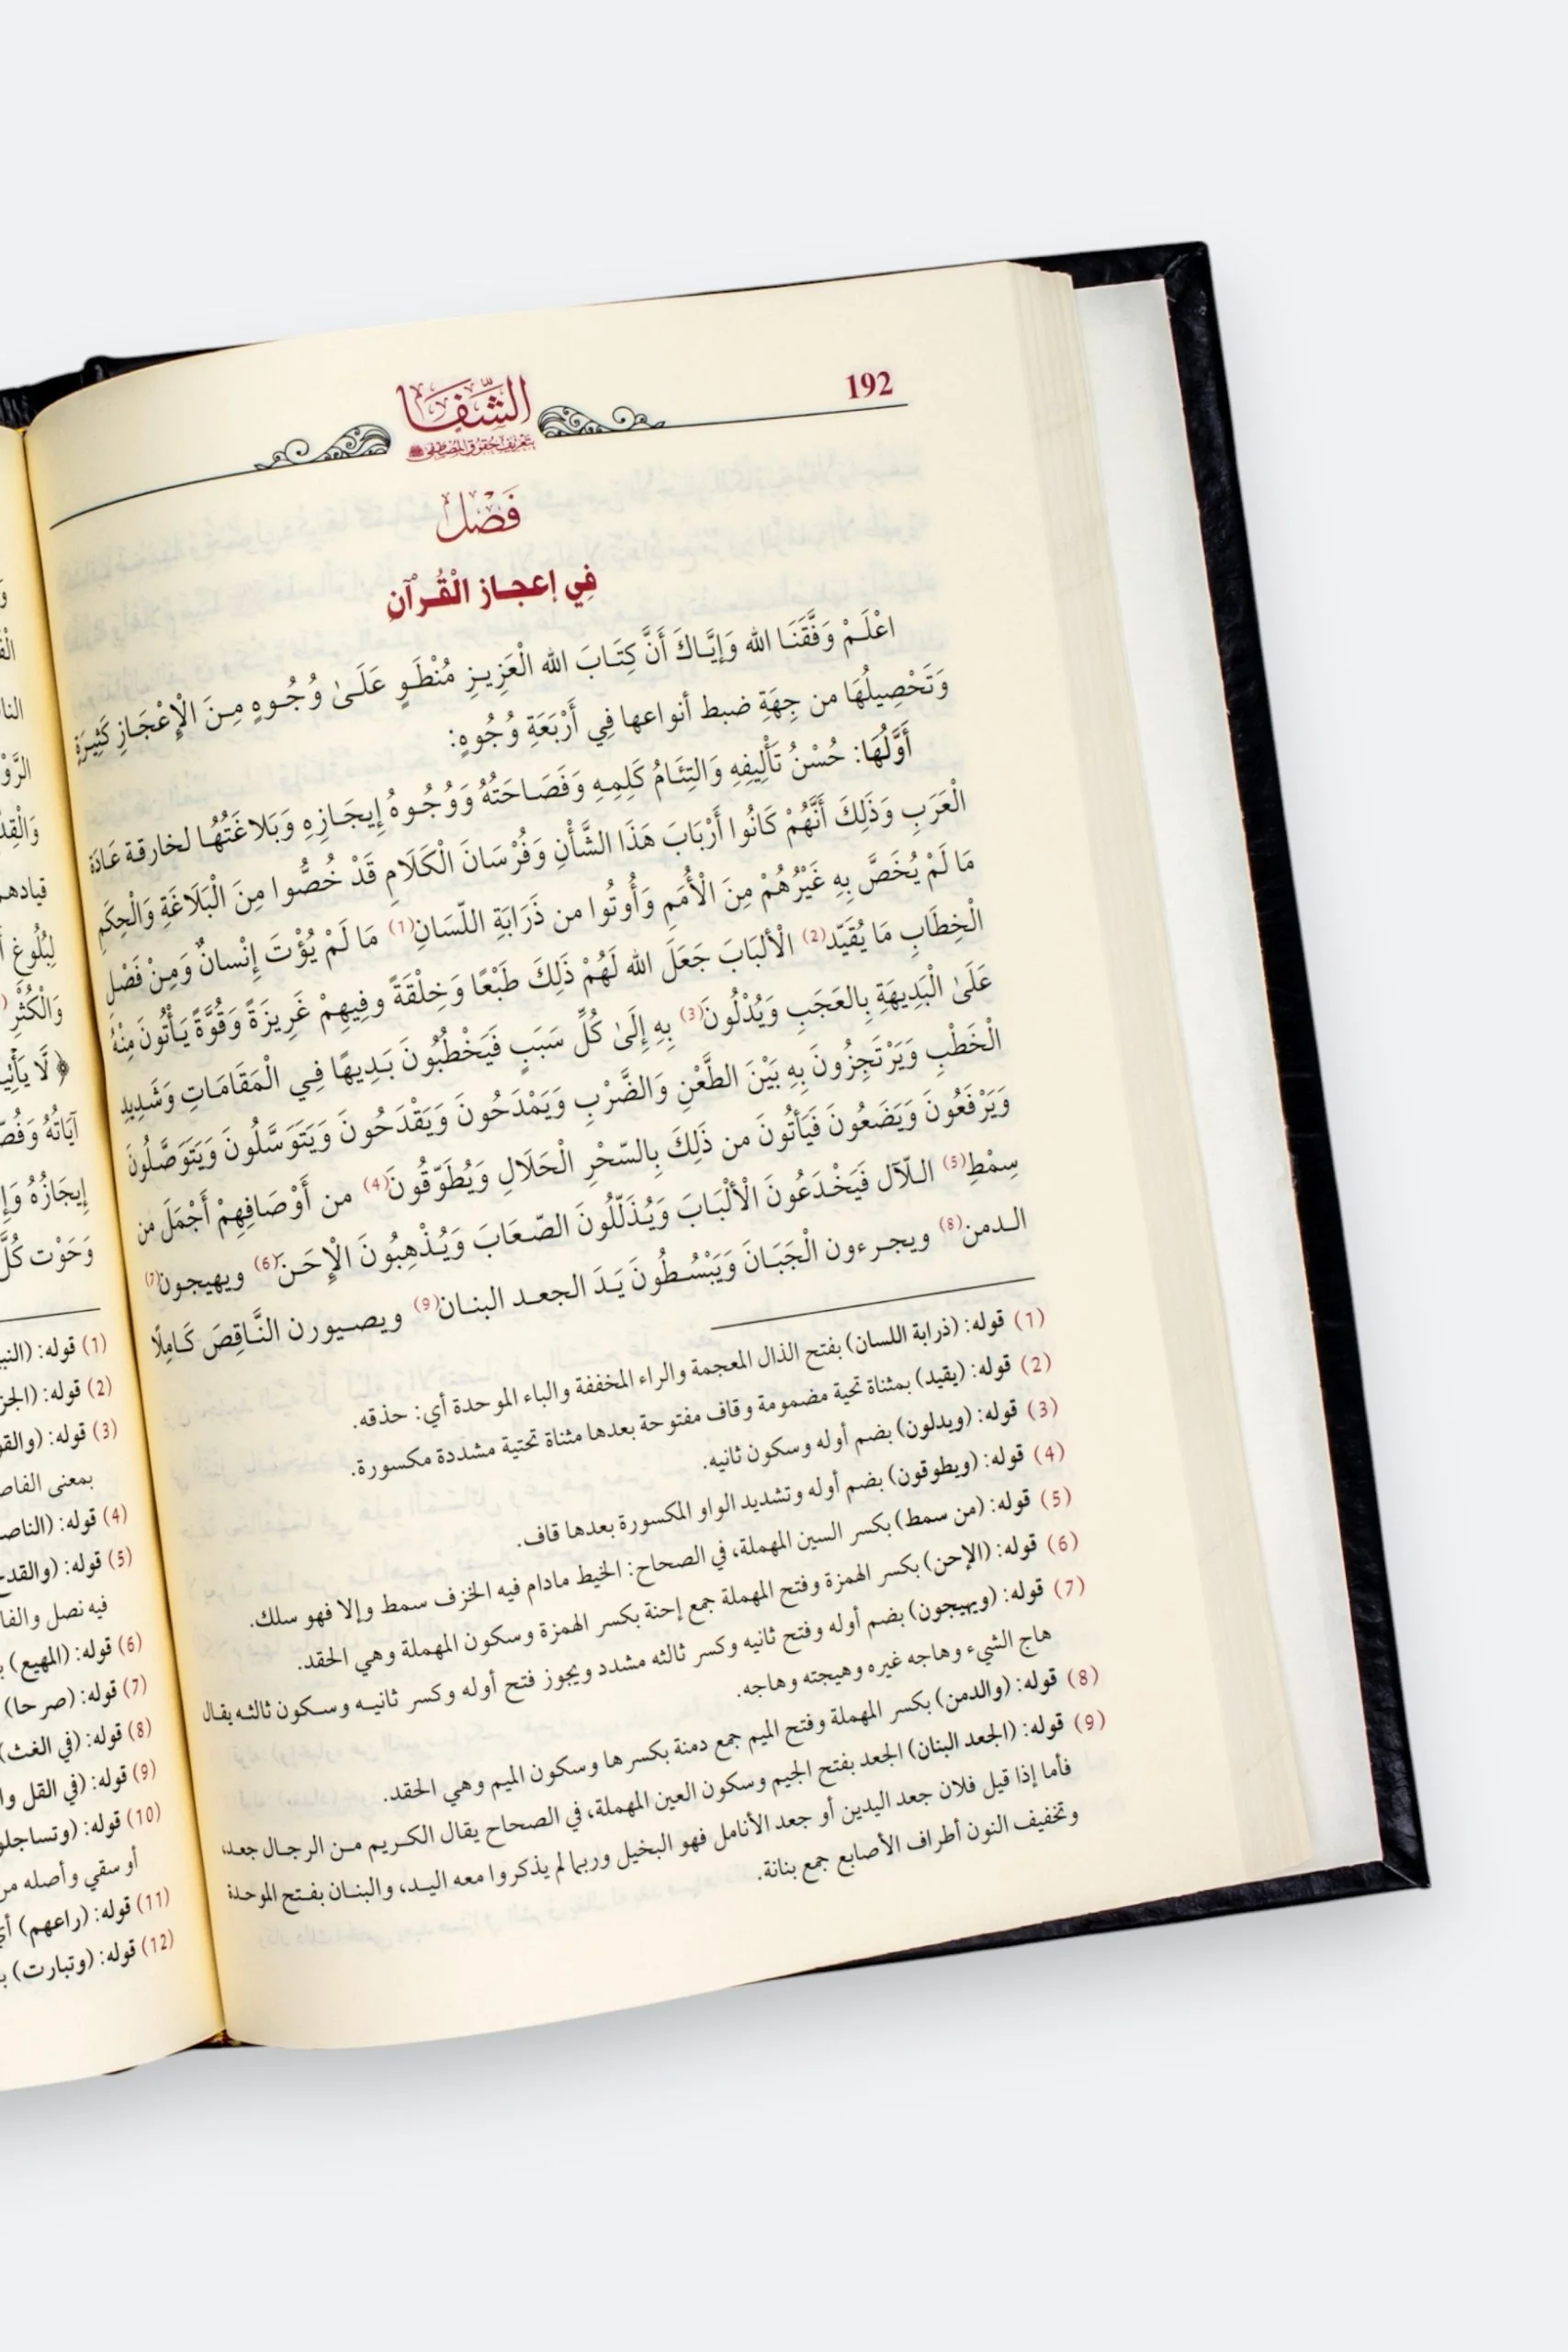 192
الشِّفَا
بتعريف حقوق المصطفى ﷺ
فَصْل
فِي إعجـاز الْقُـرْآنِ
اعْلَـمْ وَفَّقَنَـا الله وَإِيَّـاكَ أَنَّ كِتَـابَ الله الْعَزِيـزِ مُنْطَـوٍ عَلَـىٰ وُجُـوهٍ مِـنَ الْإِعْجَـازِ كَثِيـرَةٍ
وَتَحْصِيلُهَا من جِهَةِ ضبط أنواعها فِي أَرْبَعَةِ وُجُوهٍ:
أَوَّلُهَا: حُسْنُ تَأْلِيفِهِ وَالتِئَـامُ كَلِمِـهِ وَفَصَـاحَتُهُ وَوُجُـوهُ إِيجَـازِهِ وَبَلاغَتُهُـا لخارقـة عَـادَة
الْعَرَبِ وَذَلِكَ أَنَّهُمْ كَانُوا أَرْبَابَ هَذَا الشَّأْنِ وَفُرْسَانَ الْكَلَامِ قَدْ خُصُّوا مِنَ الْبَلَاغَةِ وَالْحِكَمِ
مَا لَمْ يُخَصَّ بِهِ غَيْرُهُمْ مِنَ الْأُمَمِ وَأُوتُوا من ذَرَابَةِ اللّسَانِ(1) مَا لَمْ يُؤْتَ إِنْسانٌ وَمِنْ فَصْلِ
الْخِطَابِ مَا يُقَيّد(2) الْألبَابَ جَعَلَ الله لَهُمْ ذَلِكَ طَبْعًا وَخِلْقَةً وفِيهِمْ غَرِيزَةً وَقُوَّةً يَأْتُونَ مِنْهُ
عَلَىٰ الْبَدِيهَةِ بِالعَجَبِ وَيُدْلُونَ(3) بِهِ إِلَىٰ كُلِّ سَبَبٍ فَيَخْطُبُونَ بَـدِيهًا فِـي الْمَقَامَـاتِ وَشَدِيدِ
الْخَطْبِ وَيَرْتَجِزُونَ بِهِ بَيْنَ الطَّعْنِ وَالضَّرْبِ وَيَمْدَحُونَ وَيَقْدَحُونَ وَيَتَوَسَّلُونَ وَيَتَوَصَّلُونَ
وَيَرْفَعُونَ وَيَضَعُونَ فَيَأتُونَ من ذَلِكَ بِالسّحْرِ الْحَلَالِ وَيُطَوّقُونَ(4) من أَوْصَافِهِمْ أَجْمَلَ من
سِمْطِ(5) الـلّآل فَيَخْـدَعُونَ الْألْبَـابَ وَيُـذَلّلُونَ الصّـعَابَ وَيُـذْهِبُونَ الْإِحَـنَ(6) ويهيجـون(7)
الـدمن(8) ويجـرءون الْجَبَـانَ وَيَبْسُـطُونَ يَـدَ الجعـد البنـان(9) ويصـيورن النَّـاقِصَ كَـامِلًا
(1) قوله: (ذرابة اللسان) بفتح الذال المعجمة والراء المخففة والباء الموحدة أي: حذقه.
(2) قوله: (يقيد) بمثناة تحية مضمومة وقاف مفتوحة بعدها مثناة تحتية مشددة مكسورة.
(3) قوله: (ويدلون) بضم أوله وسكون ثانيه.
(4) قوله: (ويطوقون) بضم أوله وتشديد الواو المكسورة بعدها قاف.
(5) قوله: (من سمط) بكسر السين المهملة، في الصحاح: الخيط مادام فيه الخزف سمط وإلا فهو سلك.
(6) قوله: (الإحن) بكسر الهمزة وفتح المهملة جمع إحنة بكسر الهمزة وسكون المهملة وهي الحقد.
(7) قوله: (ويهيجون) بضم أوله وفتح ثانيه وكسر ثالثه مشدد ويجوز فتح أوله وكسر ثانيـه وسـكون ثالثـه يقال
هاج الشيء وهاجه غيره وهيجته وهاجه.
(8) قوله: (والدمن) بكسر المهملة وفتح الميم جمع دمنة بكسرها وسكون الميم وهي الحقد.
(9) قوله: (الجعد البنان) الجعد بفتح الجيم وسكون العين المهملة، في الصحاح يقال الكـريم مـن الرجـال جعد،
فأما إذا قيل فلان جعد اليدين أو جعد الأنامل فهو البخيل وربما لم يذكروا معه اليـد، والبنـان بفـتح الموحدة
وتخفيف النون أطراف الأصابع جمع بنانة.
الرَّوْ
قيادهم
لِبُلُوغِ
وَالْكُثْرِ
﴿ لَّا يَأْتِي
آيَاتُهُ وَفُصّ
إِيجَازُهُ وَإِ
وَحَوْت كُلَّ
(1) قوله: (النب
(2) قوله: (الجز
(3) قوله: (والقو
بمعنى الفاص
(4) قوله: (الناص
(5) قوله: (والقد
فيه نصل والفا
(6) قوله: (المهيع) ب
(7) قوله: (صرحا)
(8) قوله: (في الغث)
(9) قوله: (في القل وا
(10) قوله: (وتساجلو
أو سقي وأصله من
(11) قوله: (راعهم) أي
(12) قوله: (وتبارت) ب